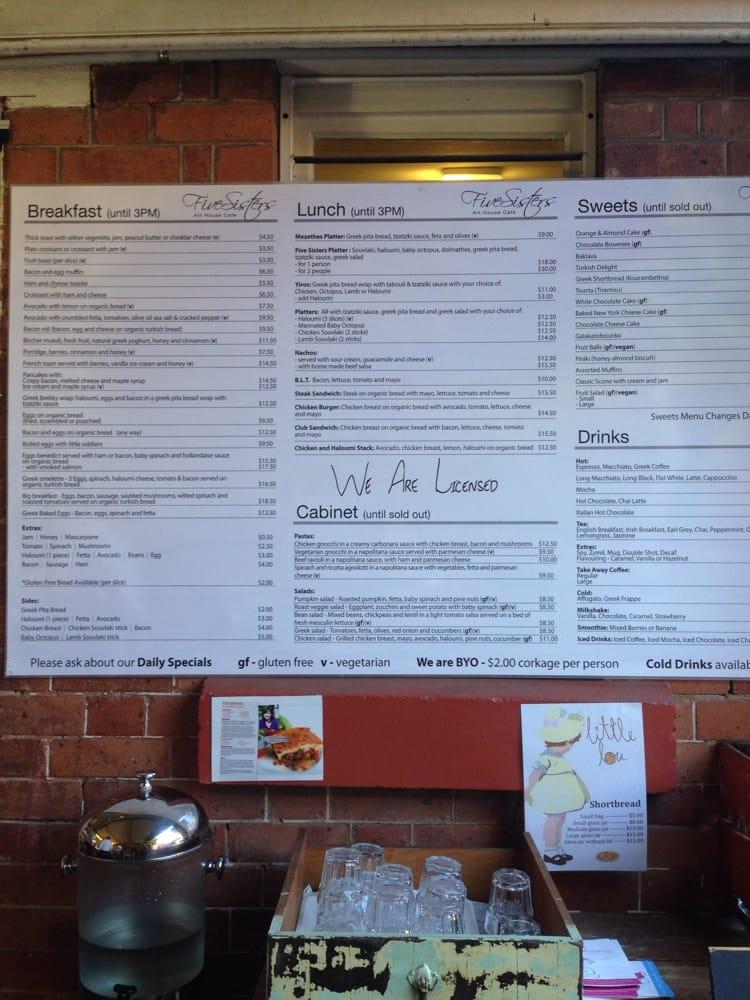 Breakfast (until 3PM)
Five Sisters
Art House Cafe
Thick toast with either vegemite, jam, peanut butter or cheddar cheese (v) $4.50
Plain croissant or croissant with jam (v) $3.50
Fruit toast (per slice) (v) $3.50
Bacon and egg muffin $6.50
Ham and cheese toastie $5.50
Croissant with ham and cheese $6.50
Avocado with lemon on organic bread (v) $7.50
Avocado with crumbled fetta, tomatoes, olive oil sea salt & cracked pepper (v) $9.50
Bacon roll (bacon, egg and cheese on organic turkish bread) $9.50
Bircher muesli, fresh fruit, natural greek yoghurt, honey and cinnamon (v) $11.50
Porridge, berries, cinnamon and honey (v) $7.50
French toast served with berries, vanilla ice-cream and honey (v) $14.50
Pancakes with:
Crispy bacon, melted cheese and maple syrup $14.50
Ice-cream and maple syrup (v) $12.50
Greek brekky wrap: haloumi, eggs and bacon in a greek pita bread wrap with
tzatziki sauce $12.50
Eggs on organic bread
(fried, scrambled or poached) $9.50
Bacon and eggs on organic bread (any way) $12.50
Boiled eggs with little soldiers $9.50
Eggs benedict served with ham or bacon, baby spinach and hollandaise sauce
on organic bread $15.50
- with smoked salmon $17.50
Greek omelette - 3 Eggs, spinach, haloumi cheese, tomato & bacon served on
organic turkish bread $16.50
Big breakfast - Eggs, bacon, sausage, sautéed mushrooms, wilted spinach and
roasted tomatoes served on organic turkish bread $18.50
Greek Baked Eggs - Bacon, eggs, spinach and fetta $12.50
Extras:
Jam | Honey | Mascarpone $0.50
Tomato | Spinach | Mushrooms $2.50
Haloumi (1 piece) | Fetta | Avocado | Beans | Egg $3.00
Bacon | Sausage | Ham $4.00
*Gluten Free Bread Available (per slice) $2.00
Sides:
Greek Pita Bread $2.00
Haloumi (1 piece) | Fetta | Avocado $3.00
Chicken Breast | Chicken Souvlaki stick | Bacon $4.00
Baby Octopus | Lamb Souvlaki stick $5.00
Lunch (until 3PM)
Five Sisters
Art House Cafe
Mezethes Platter: Greek pita bread, tzatziki sauce, feta and olives (v) $9.00
Five Sisters Platter : Souvlaki, haloumi, baby octopus, dolmathes, greek pita bread,
tzatziki sauce, greek salad
- for 1 person $18.00
- for 2 people $30.00
Yiros: Greek pita bread wrap with tabouli & tzatziki sauce with your choice of:
Chicken, Octopus, Lamb or Haloumi $11.00
- add Haloumi $3.00
Platters: All with tzatziki sauce, greek pita bread and greek salad with your choice of:
- Haloumi (3 slices) (v) $12.50
- Marinated Baby Octopus $12.50
- Chicken Souvlaki (2 sticks) $12.50
- Lamb Souvlaki (2 sticks) $14.00
Nachos:
- served with sour cream, guacamole and cheese (v) $12.50
- with home made beef salsa $15.50
B.L.T. Bacon, lettuce, tomato and mayo $10.00
Steak Sandwich: Steak on organic bread with mayo, lettuce, tomato and cheese $15.50
Chicken Burger: Chicken breast on organic bread with avocado, tomato, lettuce, cheese
and mayo $14.50
Club Sandwich: Chicken breast on organic bread with bacon, lettuce, cheese, tomato
and mayo $15.50
Chicken and Haloumi Stack: Avocado, chicken breast, lemon, haloumi on organic bread $12.50
We Are Licensed
Cabinet (until sold out)
Pastas:
Chicken gnocchi in a creamy carbonara sauce with chicken breast, bacon and mushrooms $12.50
Vegetarian gnocchi in a napolitana sauce served with parmesan cheese (v) $9.50
Beef ravioli in a napolitana sauce, with ham and parmesan cheese $10.00
Spinach and ricotta agnolotti in a napolitana sauce with vegetables, fetta and parmesan
cheese (v) $9.50
Salads:
Pumpkin salad - Roasted pumpkin, fetta, baby spinach and pine nuts (gf)(v) $8.50
Roast veggie salad - Eggplant, zucchini and sweet potato with baby spinach (gf)(v) $8.50
Bean salad - Mixed beans, chickpeas and lentil in a light tomato salsa served on a bed of
fresh mesculin lettuce (gf)(v) $8.50
Greek salad - Tomatoes, fetta, olives, red onion and cucumbers (gf)(v) $8.50
Chicken salad - Grilled chicken breast, mayo, avocado, haloumi, pine nuts, cucumber (gf) $11.00
Sweets (until sold out)
Orange & Almond Cake (gf)
Chocolate Brownies (gf)
Baklava
Turkish Delight
Greek Shortbread (Kourambethia)
Tourta (Tiramisu)
White Chocolate Cake (gf)
Baked New York Cheese Cake (gf)
Chocolate Cheese Cake
Galakatobouriko
Fruit Balls (gf)(vegan)
Finiki (honey almond biscuit)
Assorted Muffins
Classic Scone with cream and jam
Fruit Salad (gf)(vegan)
- Small
- Large
Sweets Menu Changes Da
Drinks
Hot:
Espresso, Macchiato, Greek Coffee
Long Macchiato, Long Black, Flat White, Latte, Cappuccino
Mocha
Hot Chocolate, Chai Latte
Italian Hot Chocolate
Tea:
English Breakfast, Irish Breakfast, Earl Grey, Chai, Peppermint, G
Lemongrass, Jasmine
Extras:
Soy, Zymil, Mug, Double Shot, Decaf
Flavouring - Caramel, Vanilla or Hazelnut
Take Away Coffee:
Regular
Large
Cold:
Affogato, Greek Frappe
Milkshake:
Vanilla, Chocolate, Caramel, Strawberry
Smoothie: Mixed Berries or Banana
Iced Drinks: Iced Coffee, Iced Mocha, Iced Chocolate, Iced Cha
Please ask about our Daily Specials gf - gluten free v - vegetarian We are BYO - $2.00 corkage per person Cold Drinks availab
little
lou
Shortbread
Small bag $5.00
Small glass jar $8.00
Medium glass jar $10.00
Large glass jar $15.00
Glass jar without lid $15.00